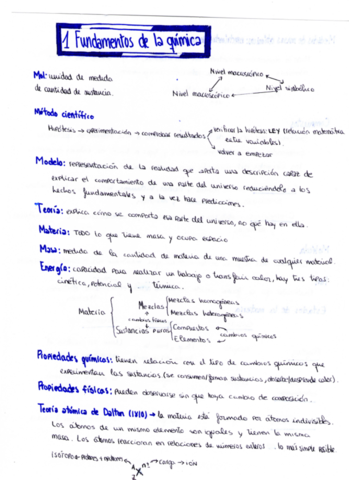 1 Fundamentos de la química
Mol: unidad de medida
de cantidad de sustancia.
Nivel macroscópico
Nivel simbólico
Nivel macroscópico
Método científico
Hipótesis → experimentación → comprobar resultados
confirmar la hipótesis: LEY (relación matemática
entre variables).
volver a empezar
Modelo: representación de la realidad que aporta una descripción capaz de
explicar el comportamiento de una parte del universo reduciéndolo a los
hechos fundamentales y a la vez hace predicciones.
Teoría: explica cómo se comporta esa parte del universo, no qué hay en ella.
Materia: TODO lo que tiene masa y ocupa espacio
Masa: medida de la cantidad de materia de una muestra de cualquier material.
Energía: capacidad para realizar un trabajo o transferir calor, hay tres tipos:
cinética, potencial y térmica
Materia
Mezclas
Mezclas homogéneas
Mezclas heterogéneas
cambios físicos
Sustancias puras
Compuestos
Elementos
cambios químicos
Propiedades químicas: tienen relación con el tipo de cambios químicos que
experimentan las sustancias (se consumen/forman sustancias, absorbe/desprende calor).
Propiedades físicas: pueden observarse sin que haya cambio de composición.
Teoría atómica de Dalton → la materia está formada por átomos indivisibles.
Los átomos de un mismo elemento son iguales y tienen la misma
masa. Los átomos reaccionan en relaciones de números enteros. lo más simple posible.
A
Z
n± → carga → ión